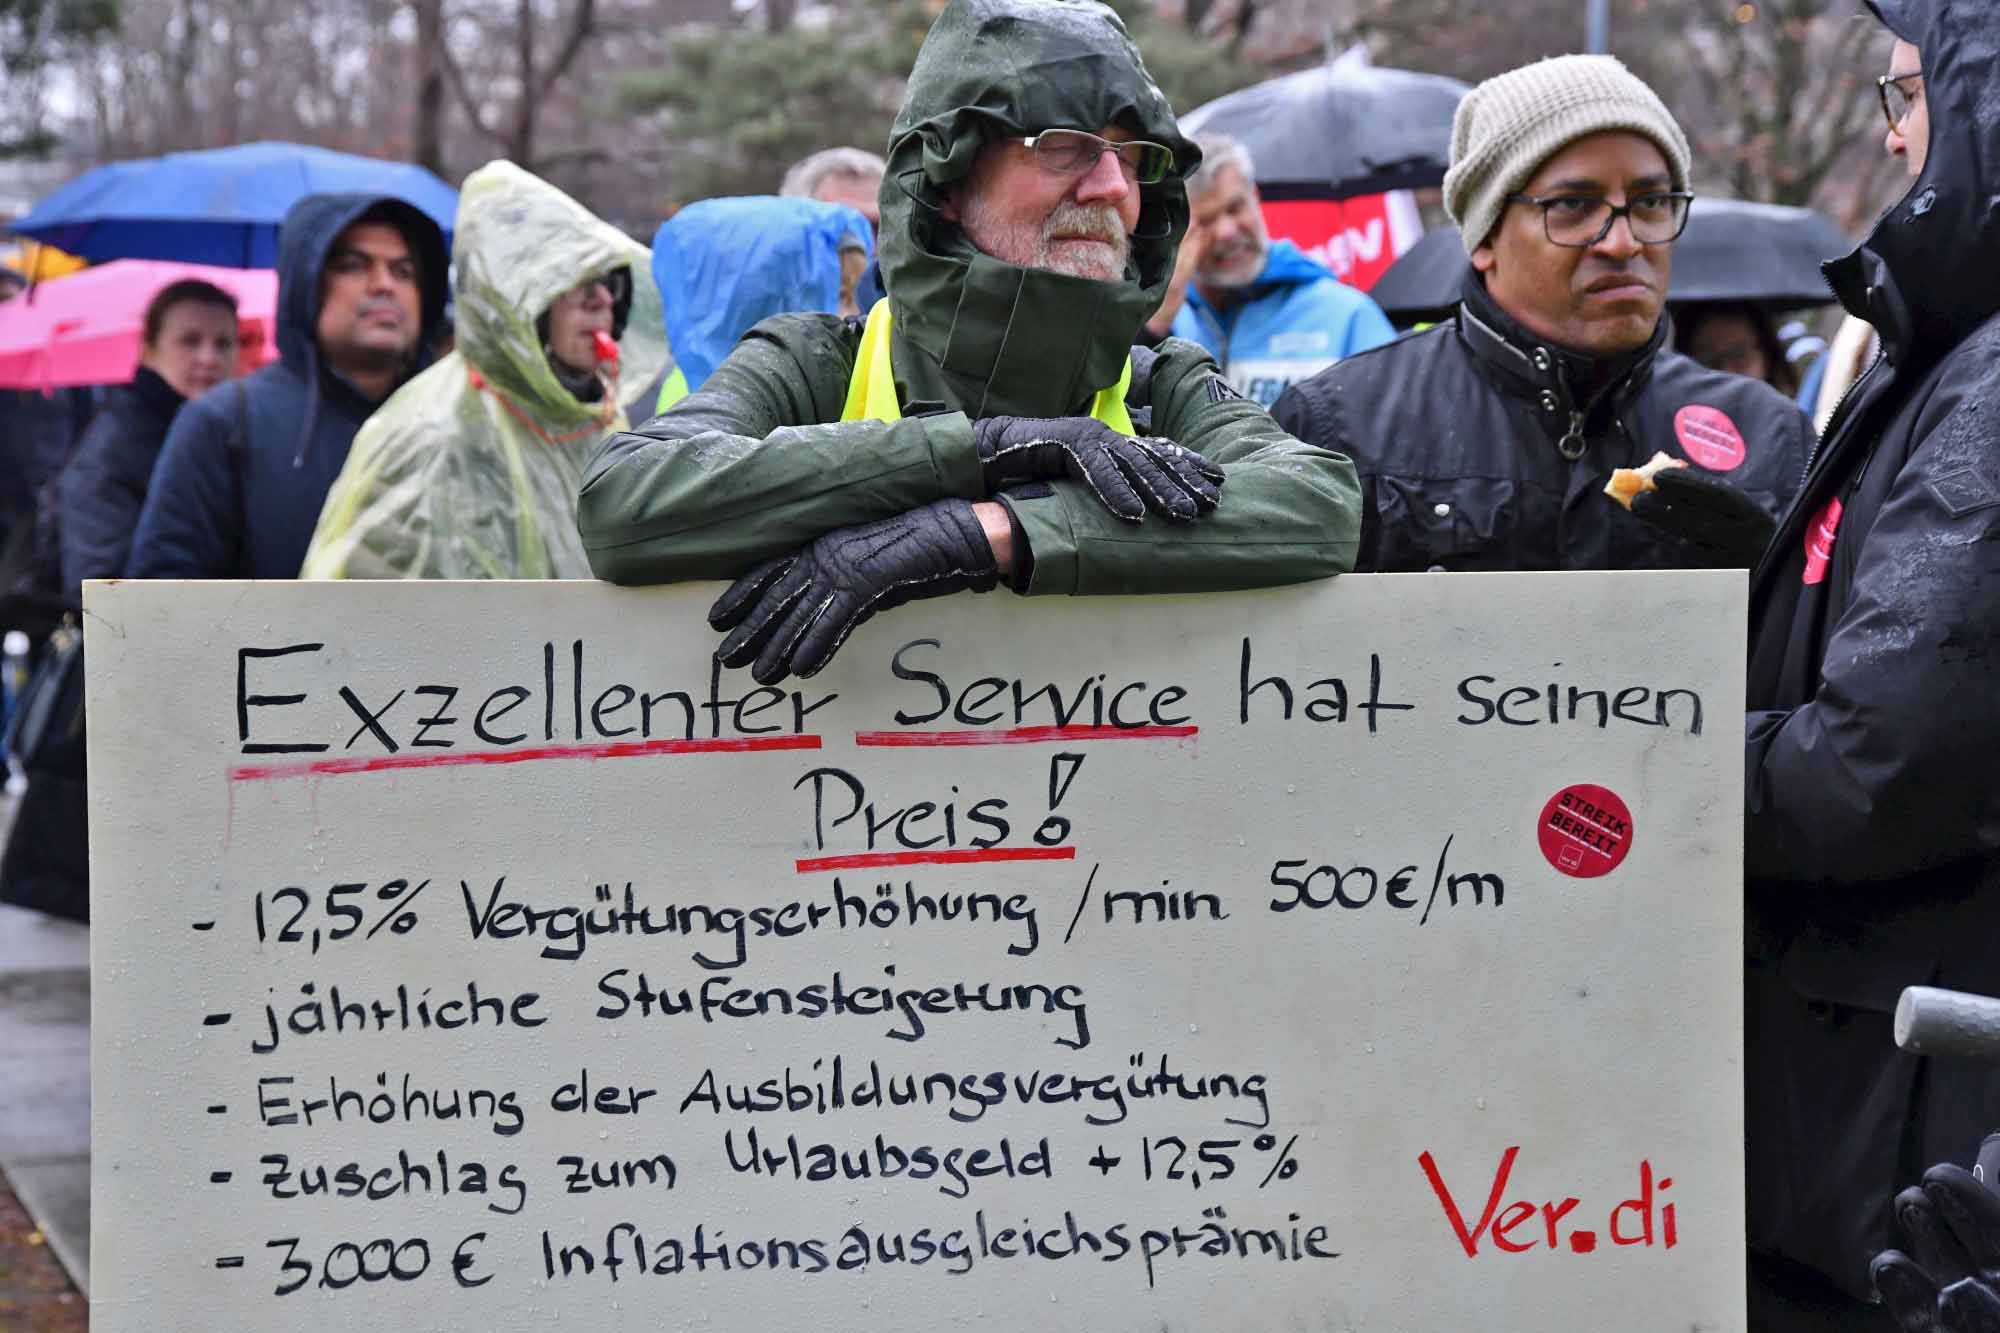 Exzellenter Service hat seinen
Preis!
- 12,5% Vergütungserhöhung /min 500€/m
- jährliche Stufensteigerung
- Erhöhung der Ausbildungsvergütung
- Zuschlag zum Urlaubsgeld + 12,5%
- 3.000 € Inflationsausgleichsprämie
Ver.di
STREIK
BEREIT